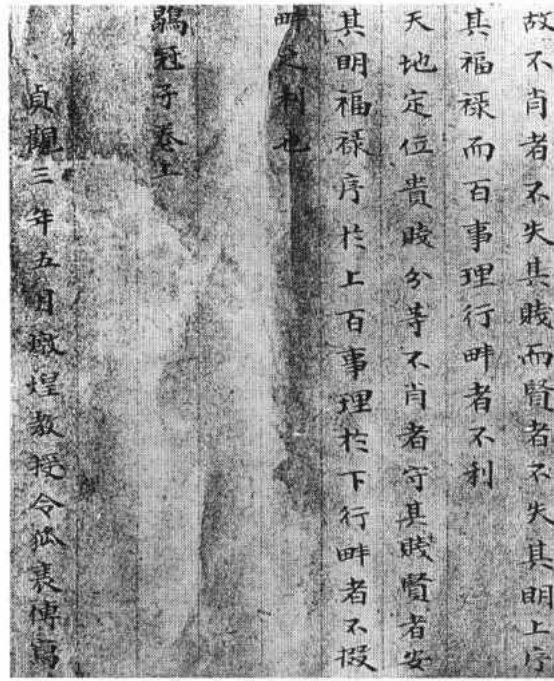 故不肖者不失其賤而賢者不失其明上序
其福祿而百事理行畔者不利
天地定位貴賤分等不肖者守其賤賢者安
其明福祿序於上百事理於下行畔者不掇
畔之利也
鶡冠子卷上
貞觀三年五月燉煌教授令狐裒傳寫